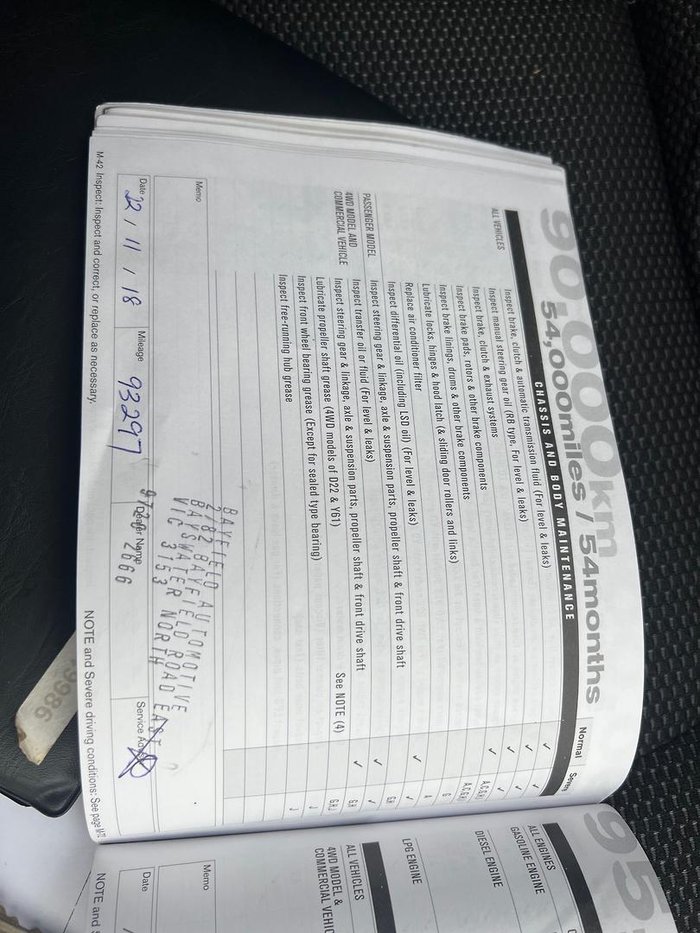 90,000km
54,000miles / 54months
CHASSIS AND BODY MAINTENANCE
Normal
Severe
ALL VEHICLES
Inspect brake, clutch & automatic transmission fluid (For level & leaks) ✓ ✓
Inspect manual steering gear oil (RB type. For level & leaks) ✓ ✓
Inspect brake, clutch & exhaust systems ✓ ✓
Inspect brake pads, rotors & other brake components ✓
Inspect brake linings, drums & other brake components
Lubricate locks, hinges & hood latch (& sliding door rollers and links) G
Replace air conditioner filter A
Inspect differential oil (including LSD oil) (For level & leaks) ✓ ✓
PASSENGER MODEL
Inspect steering gear & linkage, axle & suspension parts, propeller shaft & front drive shaft G,H
4WD MODEL AND
COMMERCIAL VEHICLE
Inspect transfer oil or fluid (For level & leaks) ✓ ✓
Inspect steering gear & linkage, axle & suspension parts, propeller shaft & front drive shaft ✓ G,H
Lubricate propeller shaft grease (4WD models of D22 & Y61) See NOTE (4) G,H,J
Inspect front wheel bearing grease (Except for sealed type bearing) J
Inspect free-running hub grease J
Memo
BAYFIELD AUTOMOTIVE
2/82 BAYFIELD ROAD EAST
BAYSWATER NORTH
VIC 3153
Date 22 / 11 / 18 Mileage 93297 Dealer Name Service
M-42 Inspect: Inspect and correct, or replace as necessary.
NOTE and Severe driving conditions: See page
95
ALL ENGINES
GASOLINE ENGINE
DIESEL ENGINE
LPG ENGINE
ALL VEHICLES
4WD MODEL &
COMMERCIAL
Memo
Date
NOTE and
9986